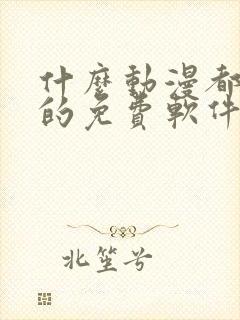 什麼動漫都
的免費軟件
北笙兮